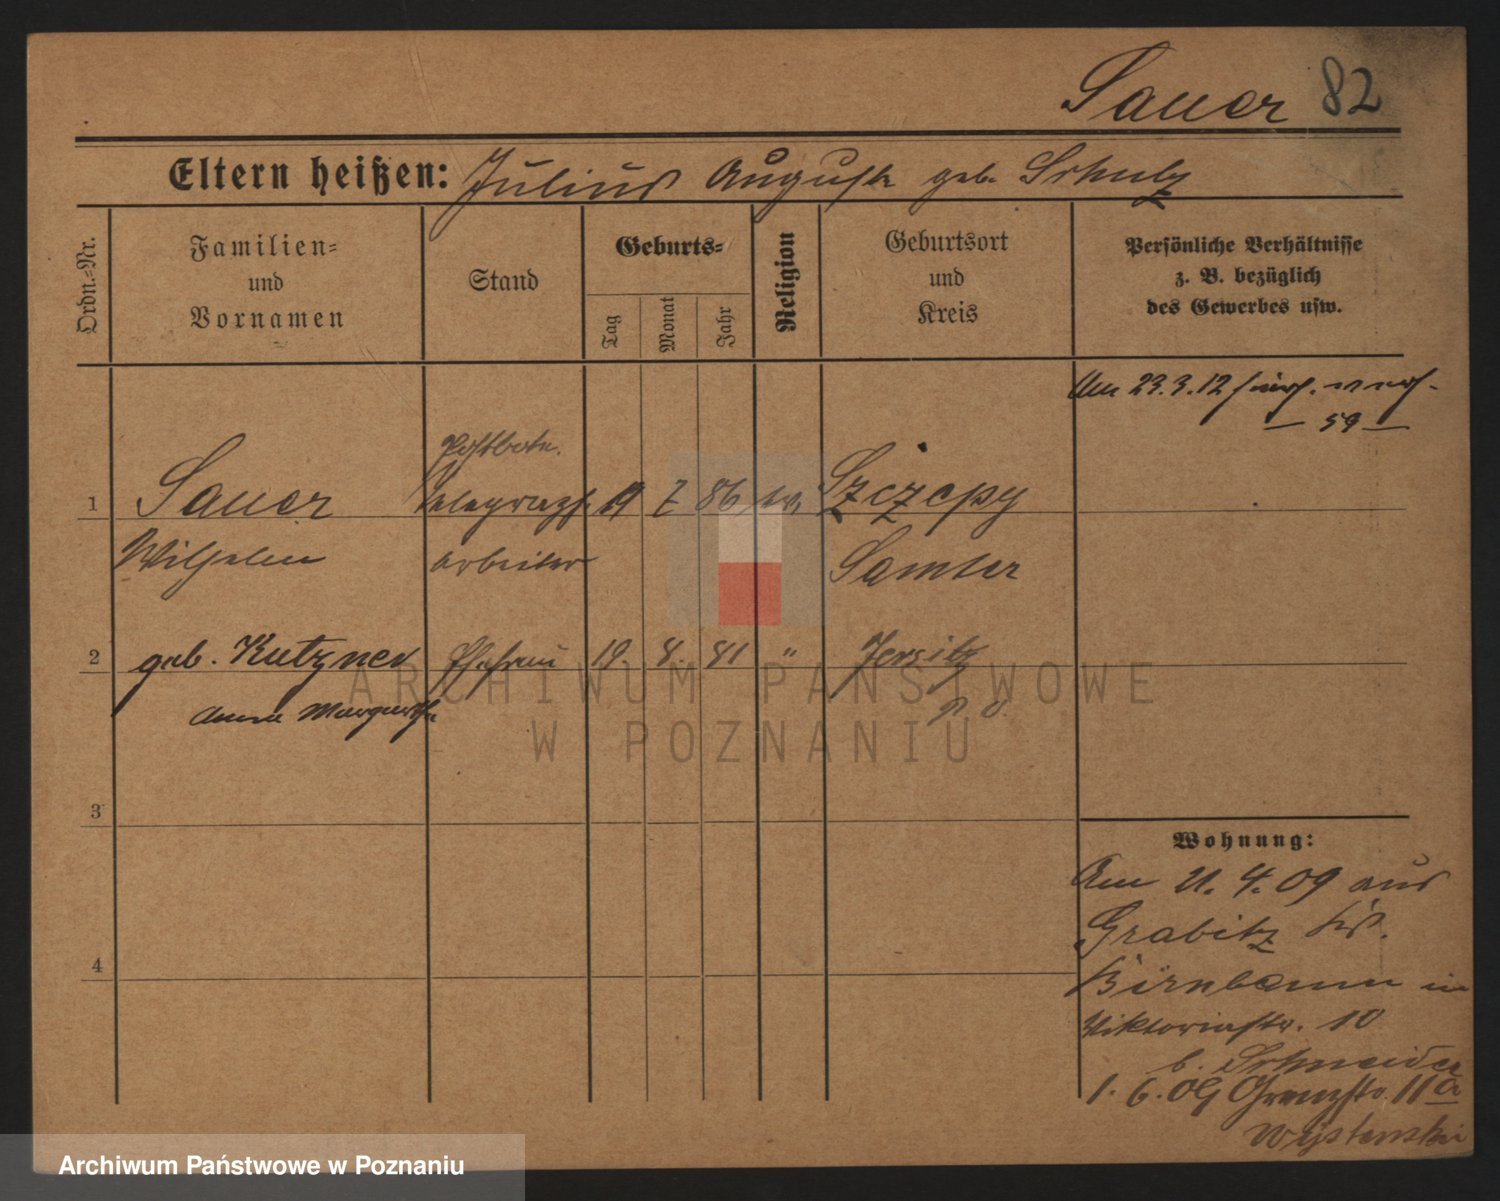 Sauer 82
Eltern heißen: Julius Auguste geb. Schulz
Ordn.-Nr.
Familien-
und
Vornamen
Stand
Geburts-
Tag
Monat
Jahr
Religion
Geburtsort
und
Kreis
Persönliche Verhältnisse
z. B. bezüglich
des Gewerbes usw.
Am 23.3.12
— 59 —
Postbote.
1 Sauer Telegraph. 19 7 86 ev. Szczepy
Wilhelm arbeiter Samter
2 geb. Kutzner Ehefrau 19. 8. 81 " Jersitz
Anna Margarethe P. O.
3
Wohnung:
Am 21. 4. 09 aus
Grabitz Krs.
4
Birnbaum in
Viktoriastr. 10
b. Schneider
1. 6. 09 Grenzstr. 11a
ARCHIWUM PAŃSTWOWE
W POZNANIU
Archiwum Państwowe w Poznaniu